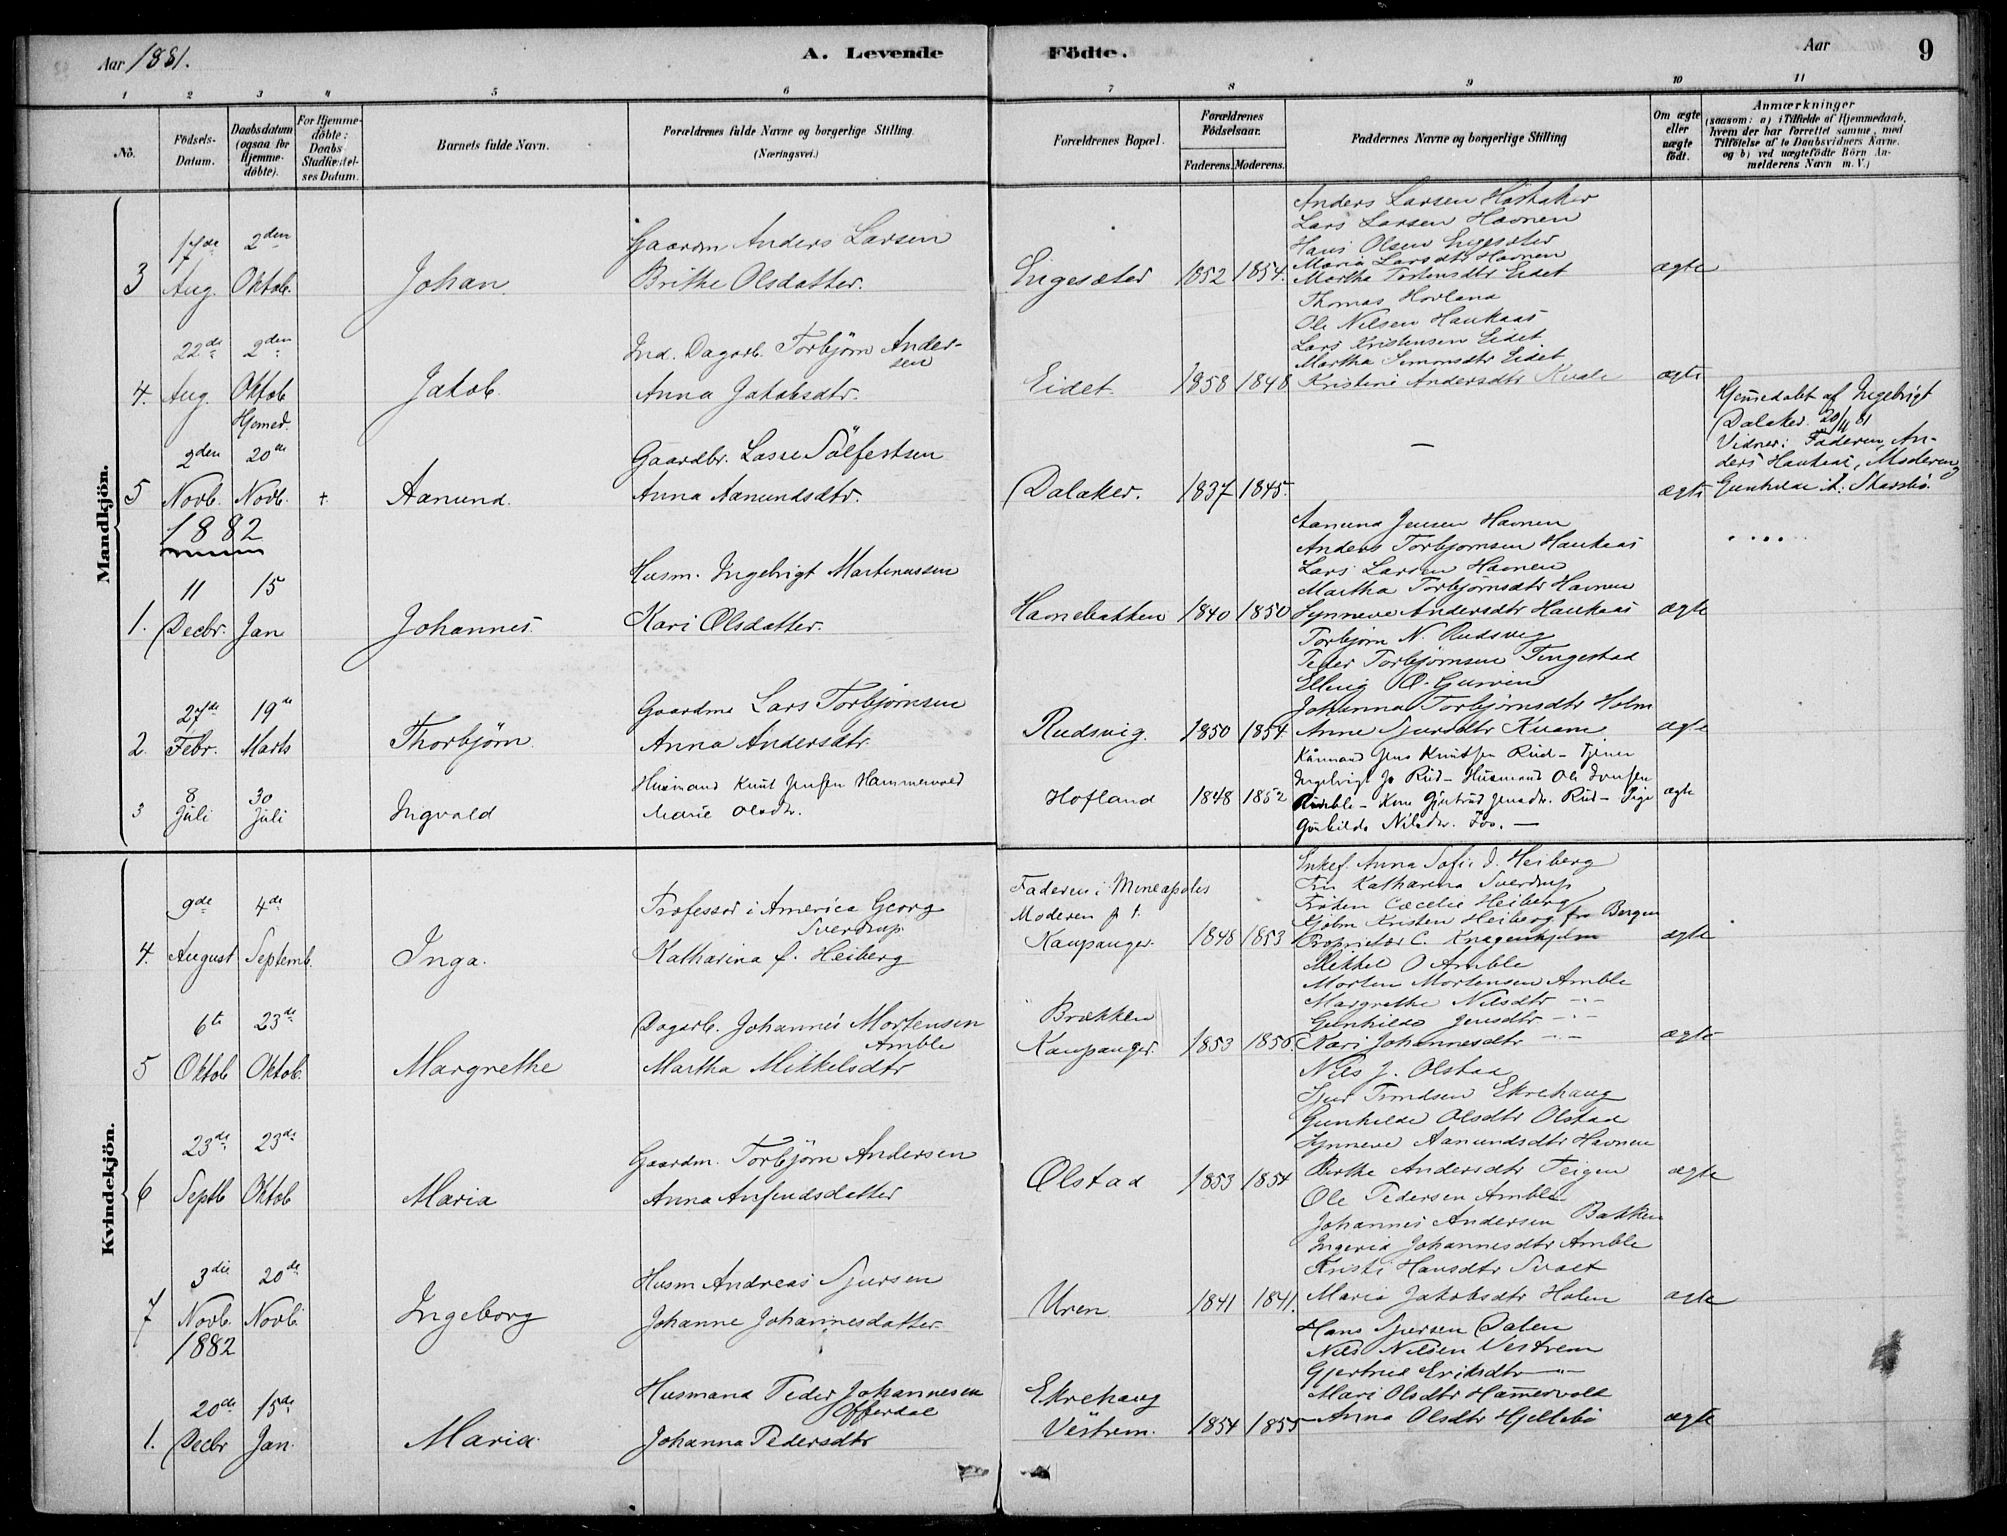 Aar 1881.
A. Levende
Födte.
Aar
9
1 2 3 4 5 6 7 8 9 10 11
No.
Födsels-Datum.
Daabsdatum (ogsaa for Hjemmedöbte).
For Hjemmedöbte: Daabs Stadfæstelses Datum.
Barnets fulde Navn.
Forældrenes fulde Navne og borgerlige Stilling. (Næringsvei.)
Forældrenes Bopæl.
Forældrenes Födselsaar.
Faderens. Moderens.
Faddernes Navne og borgerlige Stilling
Om ægte eller uægte født.
Anmærkninger
(saasom: a) i Tilfælde af Hjemmedaab, hvem der har forrettet samme, med Tilföielse af to Daabsvidners Navne. og b) ved uægtefödte Börn Anmelderens Navn m. V.)
Mandkjön.
3 17de Aug. 2den Oktob. Johan.
Gaardm Anders Larsen
Brithe Olsdatter.
Engesæter 1852 1854.
Anders Larsen Høstaker
Lars Larsen Havnen
Hans Olsen Engesæter
Maria Larsdtr Havnen
Martha Torstensdtr Eidet
ægte
4. 22de Aug. 2den Oktob Jakob.
Ind. Dagarb. Torbjørn Andersen
Anna Jakobsdtr.
Eidet. 1858 1848
Thomas Hovland
Ole Nilsen Haukaas
Lars Kristensen Eidet
Martha Simonsdtr Eidet
Kristine Andersdtr Kvale
ægte
5 2den Novb. Hjemed. 20de Novb. + Aanund.
Gaardbr. Lasse Sølfestsen
Anna Aanundsdtr.
Dalaker. 1837 1845.
—
ægte
Hjemedøbt af Ingebrigt
Dalaker 20/11 81
Vidner: Faderen, Anders Haukaas, Moderen
Gunhilde A. Skarsbø.
1882
1. 11 Decbr. 15 Jan Johannes.
Husm. Ingebrigt Martinussen
Kari Olsdatter.
Havnebakken 1840 1850
Aanund Jensen Havnen
Anders Torbjørnsen Haukaas
Lars Larsen Havnen
Martha Torbjørnsdtr Havnen
Synneve Andersdtr Haukaas
ægte
2. 27de Febr. 19de Marts Thorbjørn.
Gaardm Lars Torbjørnsen
Anna Andersdtr.
Rudsvig. 1850 1854
Torbjørn N. Rudsvig
Peder Torbjørnsen Tingestad
Elling O. Gurvin
Johanna Torbjørnsdtr Holm
Anne Sjursdtr Kvam
ægte
3 8 Juli 30 Juli Ingvald
Husmand Knut Jensen Hammervold
Marie Olsdtr.
Hofland 1848 1852
Kårmand Jens Knutsen Rud – Tjener
Ingebrigt Js Rud – Husmand Ole Iversen
Amble – Kone Gjertrud Jensdtr. Rud – Pige
Gunhilda Nilsdtr. Fos. —
ægte
Kvindekjön.
4. 9de August 4de Septemb. Inga.
Professor i America Georg
Sverdrup.
Katharina f. Heiberg
Faderen i Mineapolis
Moderen p t.
Kaupanger. 1848 1853
Enkef. Anna Sofie D. Heiberg
Fru Katharina Sverdrup
Frøken Cæcelie Heiberg
Hjelm Kristen Heiberg fra Bergen
Proprietær C. Knagenhjelm
ægte
5 6te Oktob 23de Oktob. Margrethe
Dagarb. Johannes Mortensen
Amble
Martha Mikkelsdtr
Brækken
Kaupanger. 1853 1856.
Mikkel O Amble
Morten Mortensen Amble
Margrethe Nilsdtr -"-
Gunhilde Jensdtr -"-
Kari Johannesdtr -"-
ægte
6 23de Septb 23de Oktob Maria
Gaardm. Torbjørn Andersen
Anna Anfindsdatter
Ølstad 1853 1854
Nils J. Olstad
Sjur Trondsen Ekrehaug
Gunhilde Olsdtr Olstad
Synneve Aamundsdtr Havnen
Birthe Andersdtr Teigen
ægte
7 3die Novb. 20de Novb. Ingeborg
Husm Andreas Sjursen
Johanne Johannesdatter.
Uren. 1841 1841.
Ole Pedersen Amble
Johannes Andersen Bakken
Ingerid Johannesdtr Amble
Kristi Hansdtr Svalt
Maria Jakobsdtr Holen
ægte
1882
1. 20de Decbr 15de Jan. Maria.
Husmand Peder Johannesen
Offerdal
Johanna Pedersdtr
Ekrehaug
Vestrem. 1854 1855
Hans Sjursen Dalen
Nils Nilsen Vestrem
Gjertrud Eriksdtr -"-
Mari Olsdtr Hamervold
Anna Olsdtr Hjeltebø
ægte